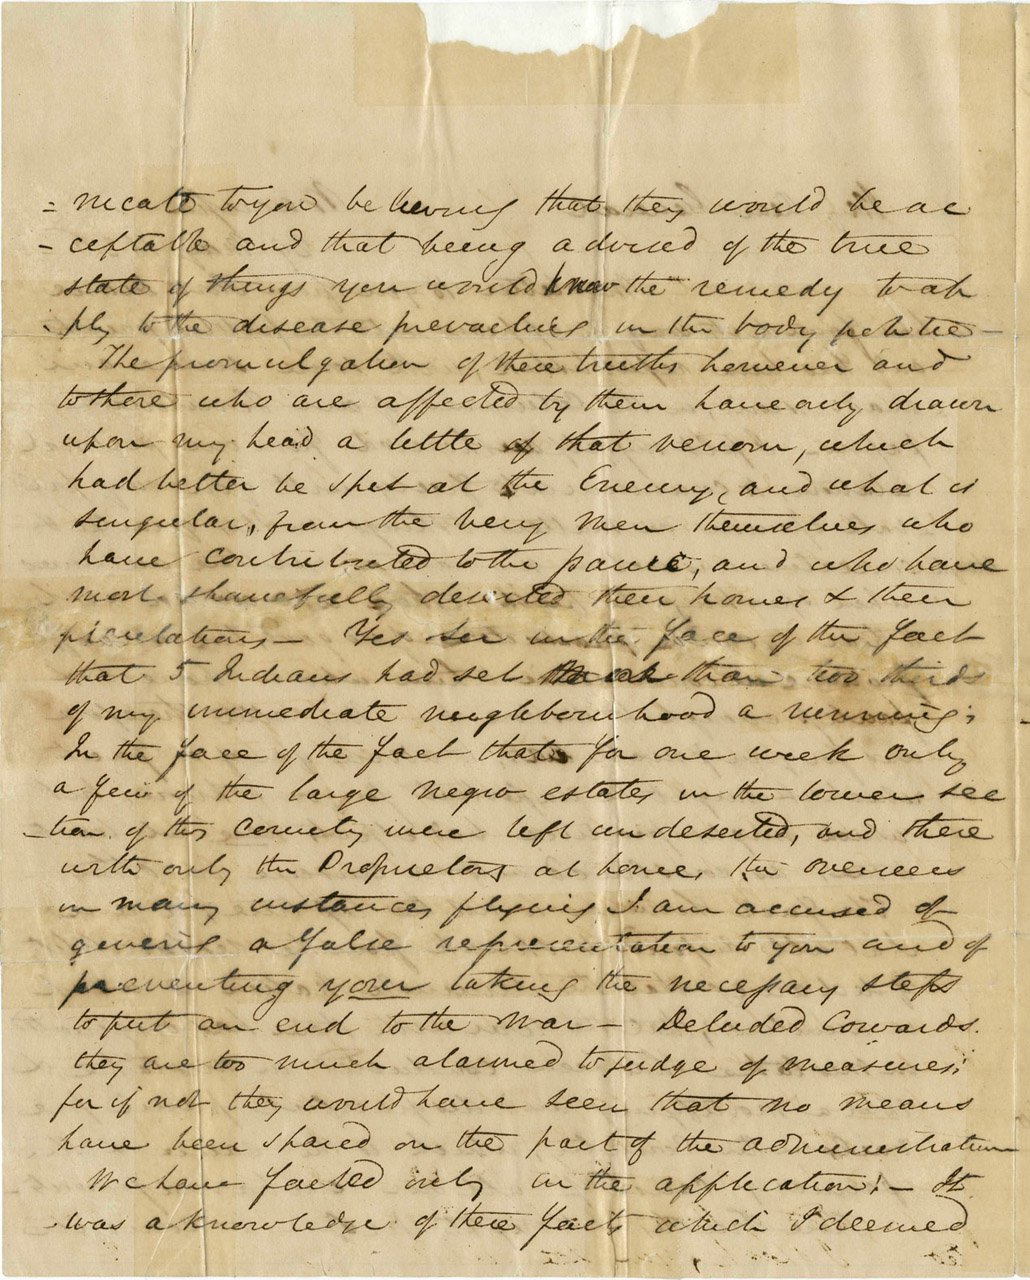 = nicate to you believing that they would be ac
- ceptable and that being advised of the true
state of things you would know the remedy to ap
- ply to the disease prevailing in the body politic -
The promulgation of these truths however and
to those who are affected by them have only drawn
upon my head a little of that venom, which
had better be spit at the Enemy, and what is
singular, from the very men themselves who
have contributed to the panic, and who have
most shamefully deserted their homes & their
plantations - Yes Sir in the face of the fact
that 5 Indians had set more than two thirds
of my immediate neighbourhood a running;
In the face of the fact that for one week only
a few of the large negro estates in the lower sec
- tion of this County were left undeserted, and there
with only the Proprietors at home, the overseers
in many instances flying I am accused of
giveing a false representation to you and of
preventing your taking the necessary steps
to put an end to the War - Deluded Cowards.
they are too much alarmed to judge of measures;
for if not they would have seen that no means
have been spared on the part of the administration
We have failed only in the application! - It
was a knowledge of these facts which I deemed